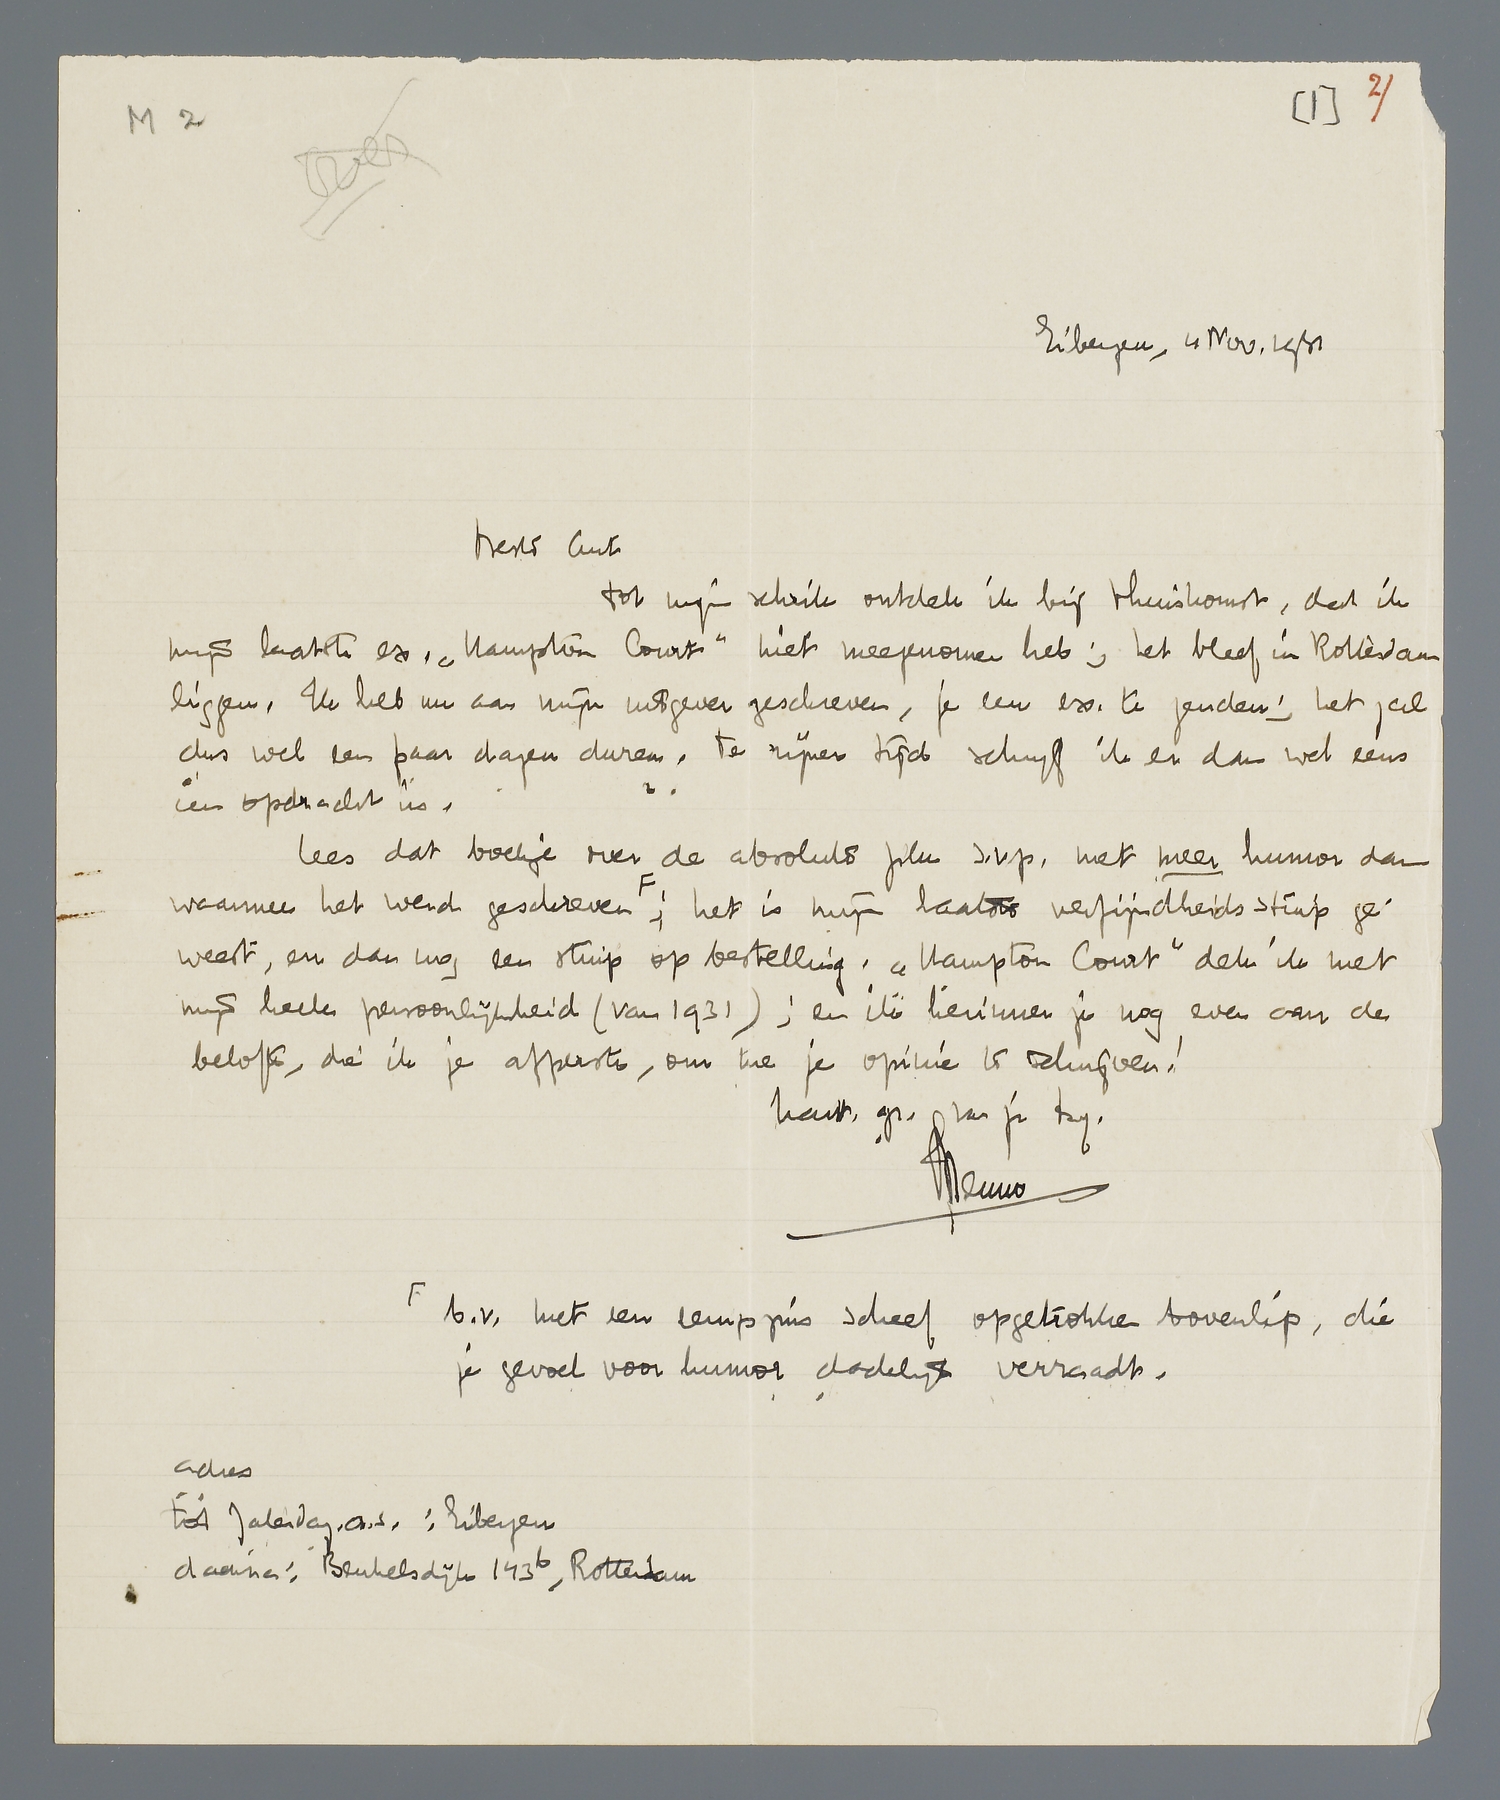 M 2
[1] 2)
Eibergen, 4 Nov. 1931
Beste Ant
tot mijn schrik ontdek ik bij thuiskomst, dat ik
mijn laatste ex. „Hampton Court" niet meegenomen heb; het bleef in Rotterdam
liggen. Ik heb nu aan mijn uitgever geschreven, je een ex. te zenden; het zal
dus wel een paar dagen duren. Te zijner tijd schrijf ik er dan wel eens
een opdracht in.
Lees dat boekje over de absolute film s.v.p. met meer humor dan
waarmee het werd geschreven F; het is mijn laatste verfijndheids-stuip ge-
weest, en dan nog een stuip op bestelling. „Hampton Court" dek ik met
mijn heele persoonlijkheid (van 1931); en ik herinner je nog even aan de
belofte, die ik je afperste, om me je opinie te schrijven!
hart. gr. van je
Menno
F b.v. met een eenigszins scheef opgetrokken bovenlip, die
je gevoel voor humor dadelijk verraadt.
adres
tot Zaterdag a.s.: Eibergen
daarna: Beukelsdijk 143b, Rotterdam